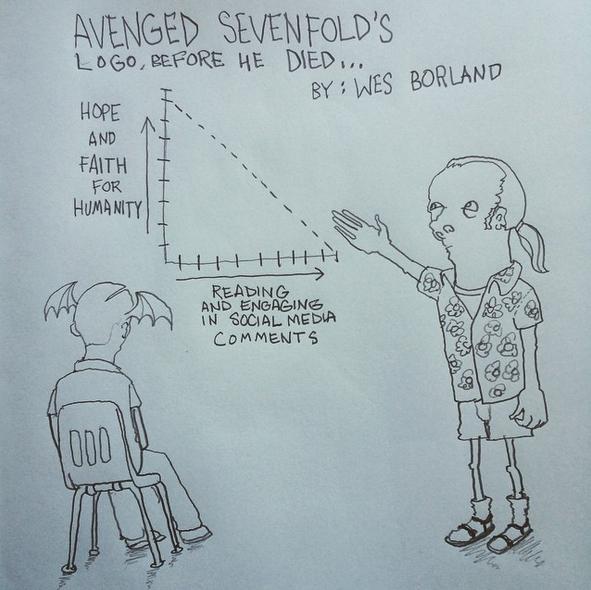 AVENGED SEVENFOLD'S
LOGO, BEFORE HE DIED...
BY: WES BORLAND
HOPE
AND
FAITH
FOR
HUMANITY
READING
AND ENGAGING
IN SOCIAL MEDIA
COMMENTS